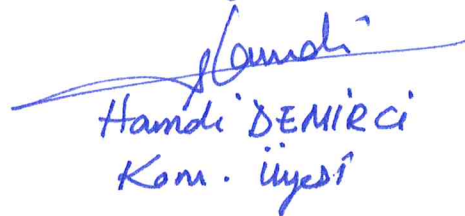 Hamdi
Hamdi DEMİRCİ
Kom. Üyesi